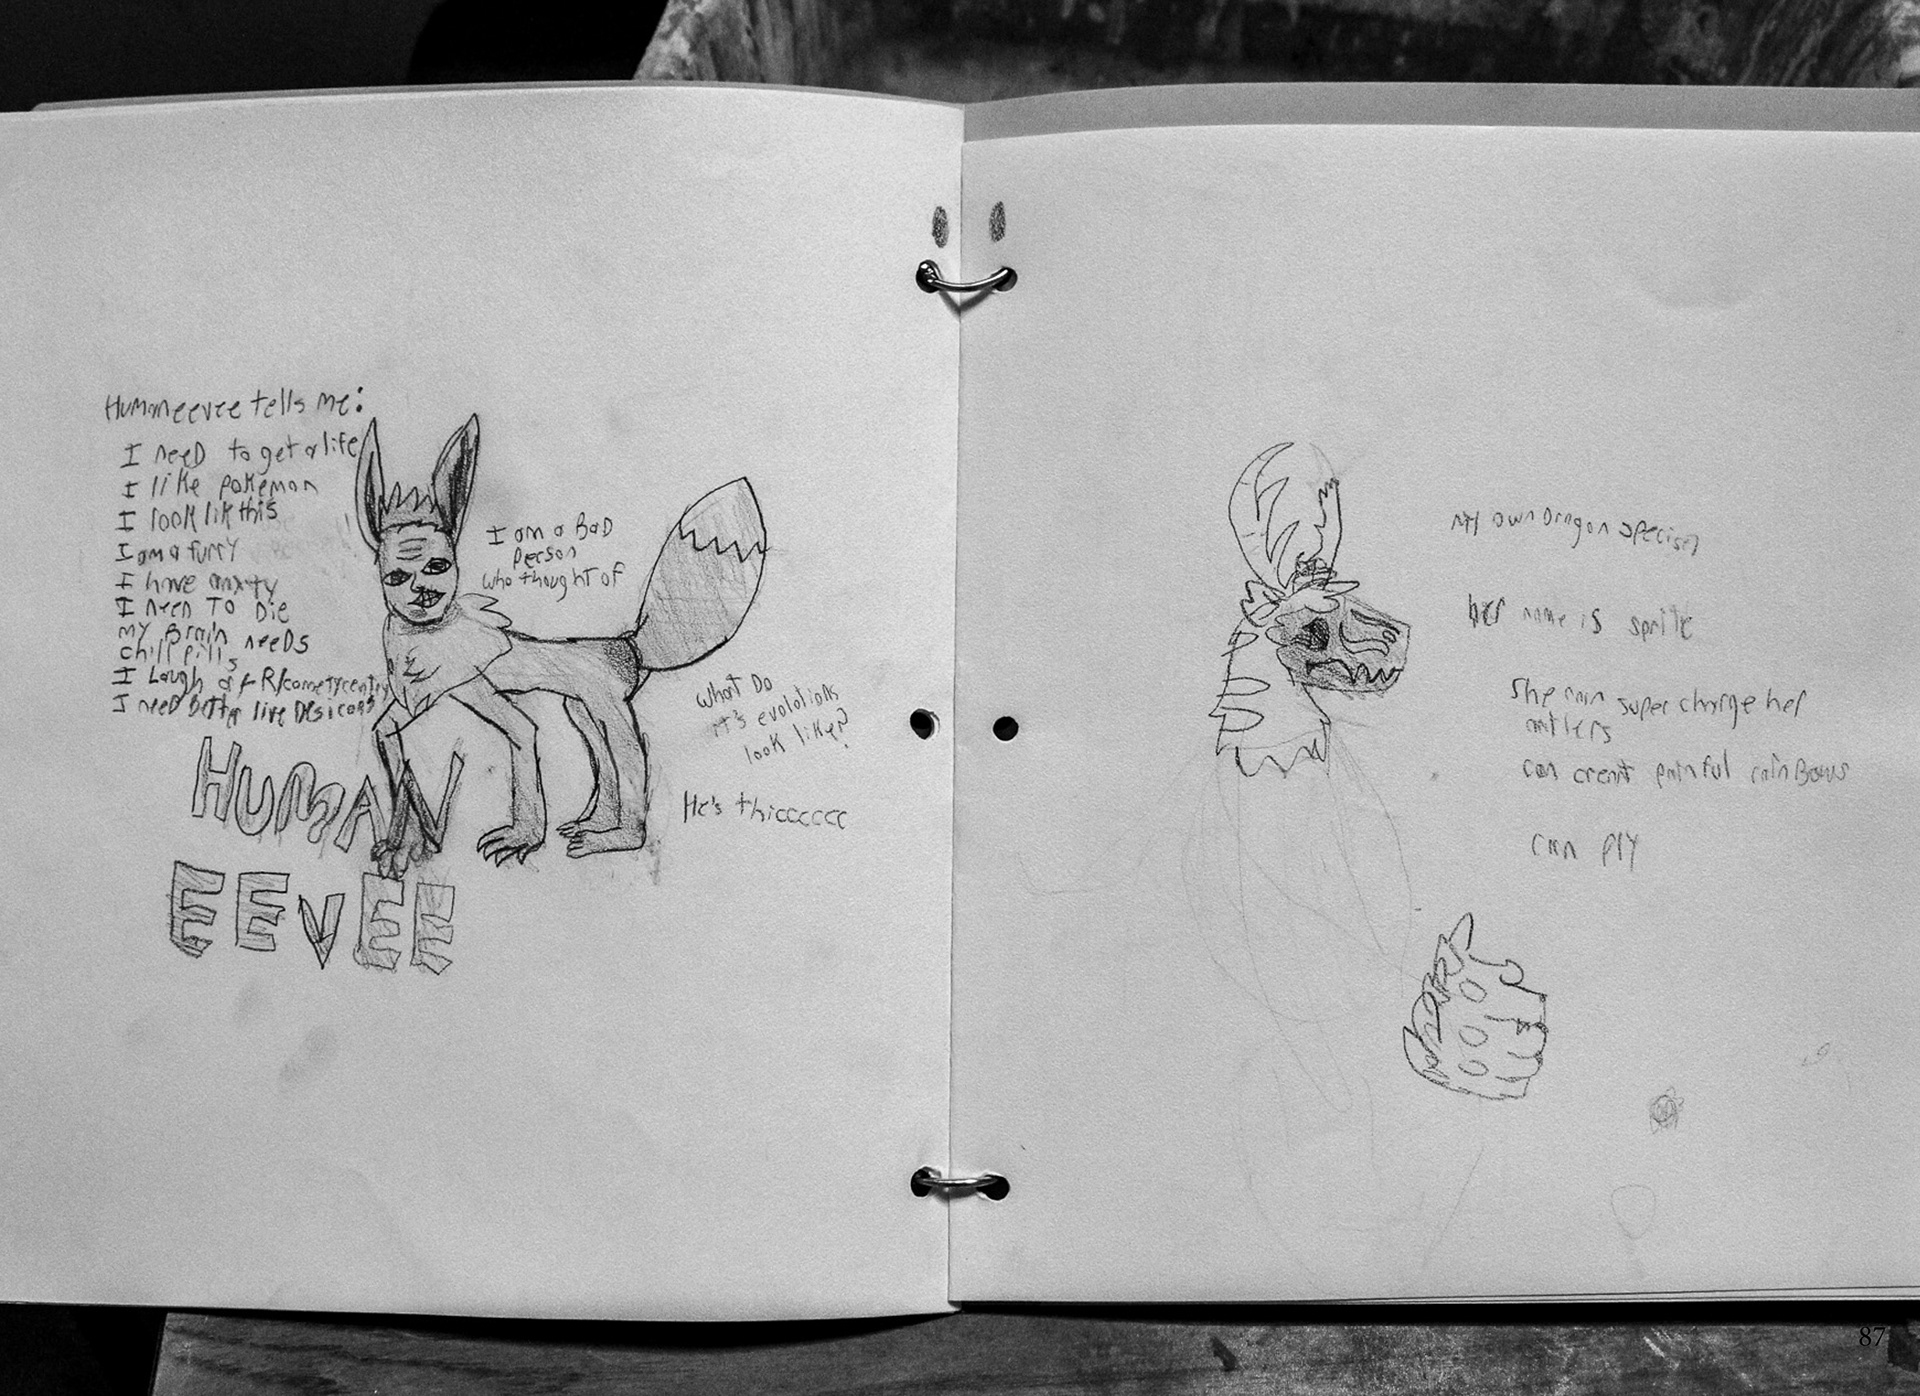 Humaneevee tells me:
I need to get a life
I like pokemon
I look lik this
I am a furry
I have anxty
I need To Die
my Brain needs
chill pills
I Laugh at R/cometycentry
I need better live Desicons
I am a Bad
person
who thought of
What Do
it's evolotions
look like?
He's thiccccccc
HUMAN
EEVEE
my own Dragon specises
her name is sprite
She can super charge her
antlers
can creat painful rainBows
can fly
87